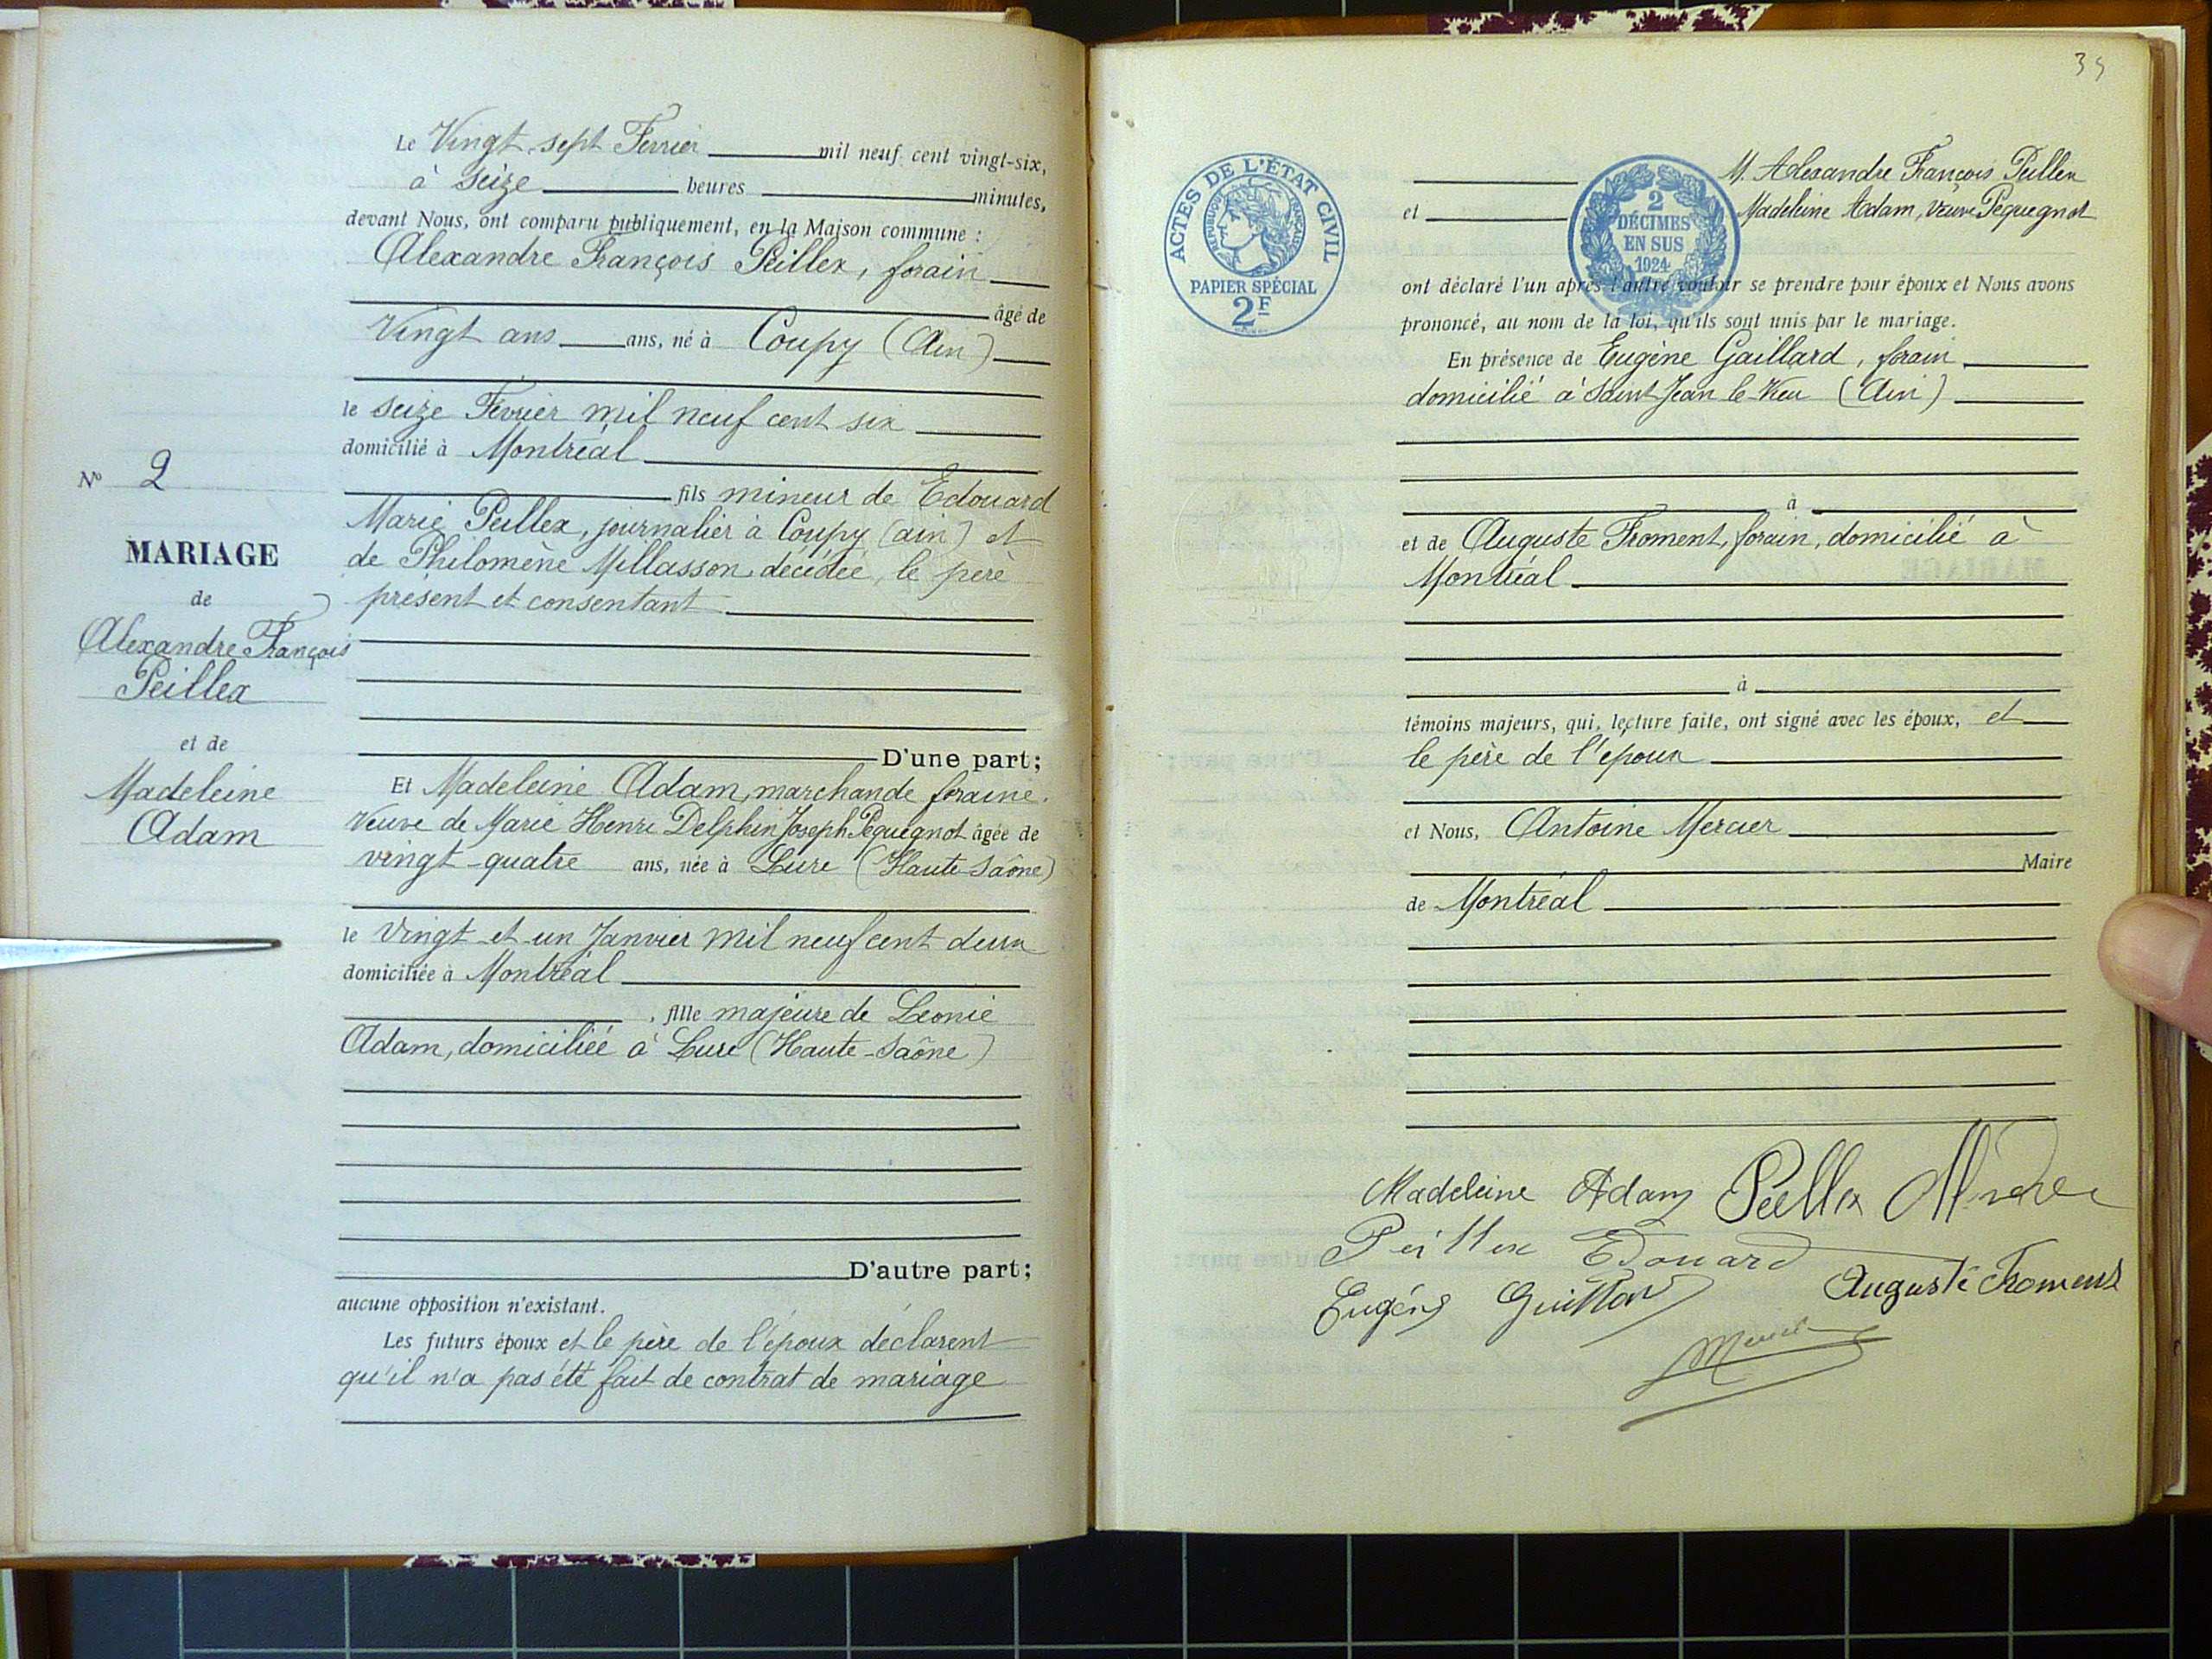 Le Vingt-sept Fevrier mil neuf cent vingt-six,
à Seize heures minutes,
devant Nous, ont comparu publiquement, en la Maison commune :
Alexandre François Peillex, forain
âgé de
Vingt ans ans, né à Coupy (Ain)
le seize Février mil neuf cent six
domicilié à Montréal
fils mineur de Edouard
Marie Peillex, journalier à Coupy (ain) et
de Philomène Millasson décédée, le père
présent et consentant
D'une part;
N° 2
MARIAGE
de
Alexandre François
Peillex
et de
Madeleine
Adam
Et Madeleine Adam, marchande foraine.
Veuve de Marie Henri Delphin Joseph Pequegnot âgée de
vingt-quatre ans, née à Lure (Haute-Saône)
le Vingt et un Janvier mil neuf cent deux
domiciliée à Montréal
, fille majeure de Leonie
Adam, domiciliée à Lure (Haute-Saône)
D'autre part;
aucune opposition n'existant.
Les futurs époux et le père de l'époux déclarent
qu'il n'a pas été fait de contrat de mariage
39
ACTES DE L'ÉTAT CIVIL
RÉPUBLIQUE FRANÇAISE
PAPIER SPÉCIAL
2F
2
DÉCIMES
EN SUS
1924
M. Alexandre François Peillex
et Madeleine Adam, Veuve Pequegnot
ont déclaré l'un après l'autre vouloir se prendre pour époux et Nous avons
prononcé, au nom de la loi, qu'ils sont unis par le mariage.
En présence de Eugène Gaillard, forain
domicilié à Saint Jean le-Vieu (Ain)
à
et de Auguste Froment, forain, domicilié à
Montréal
à
témoins majeurs, qui, lecture faite, ont signé avec les époux, et
le père de l'époux
et Nous, Antoine Mercier
Maire
de Montréal
Madeleine Adam Peillex
Peillex Edouard
Eugène Auguste Froment